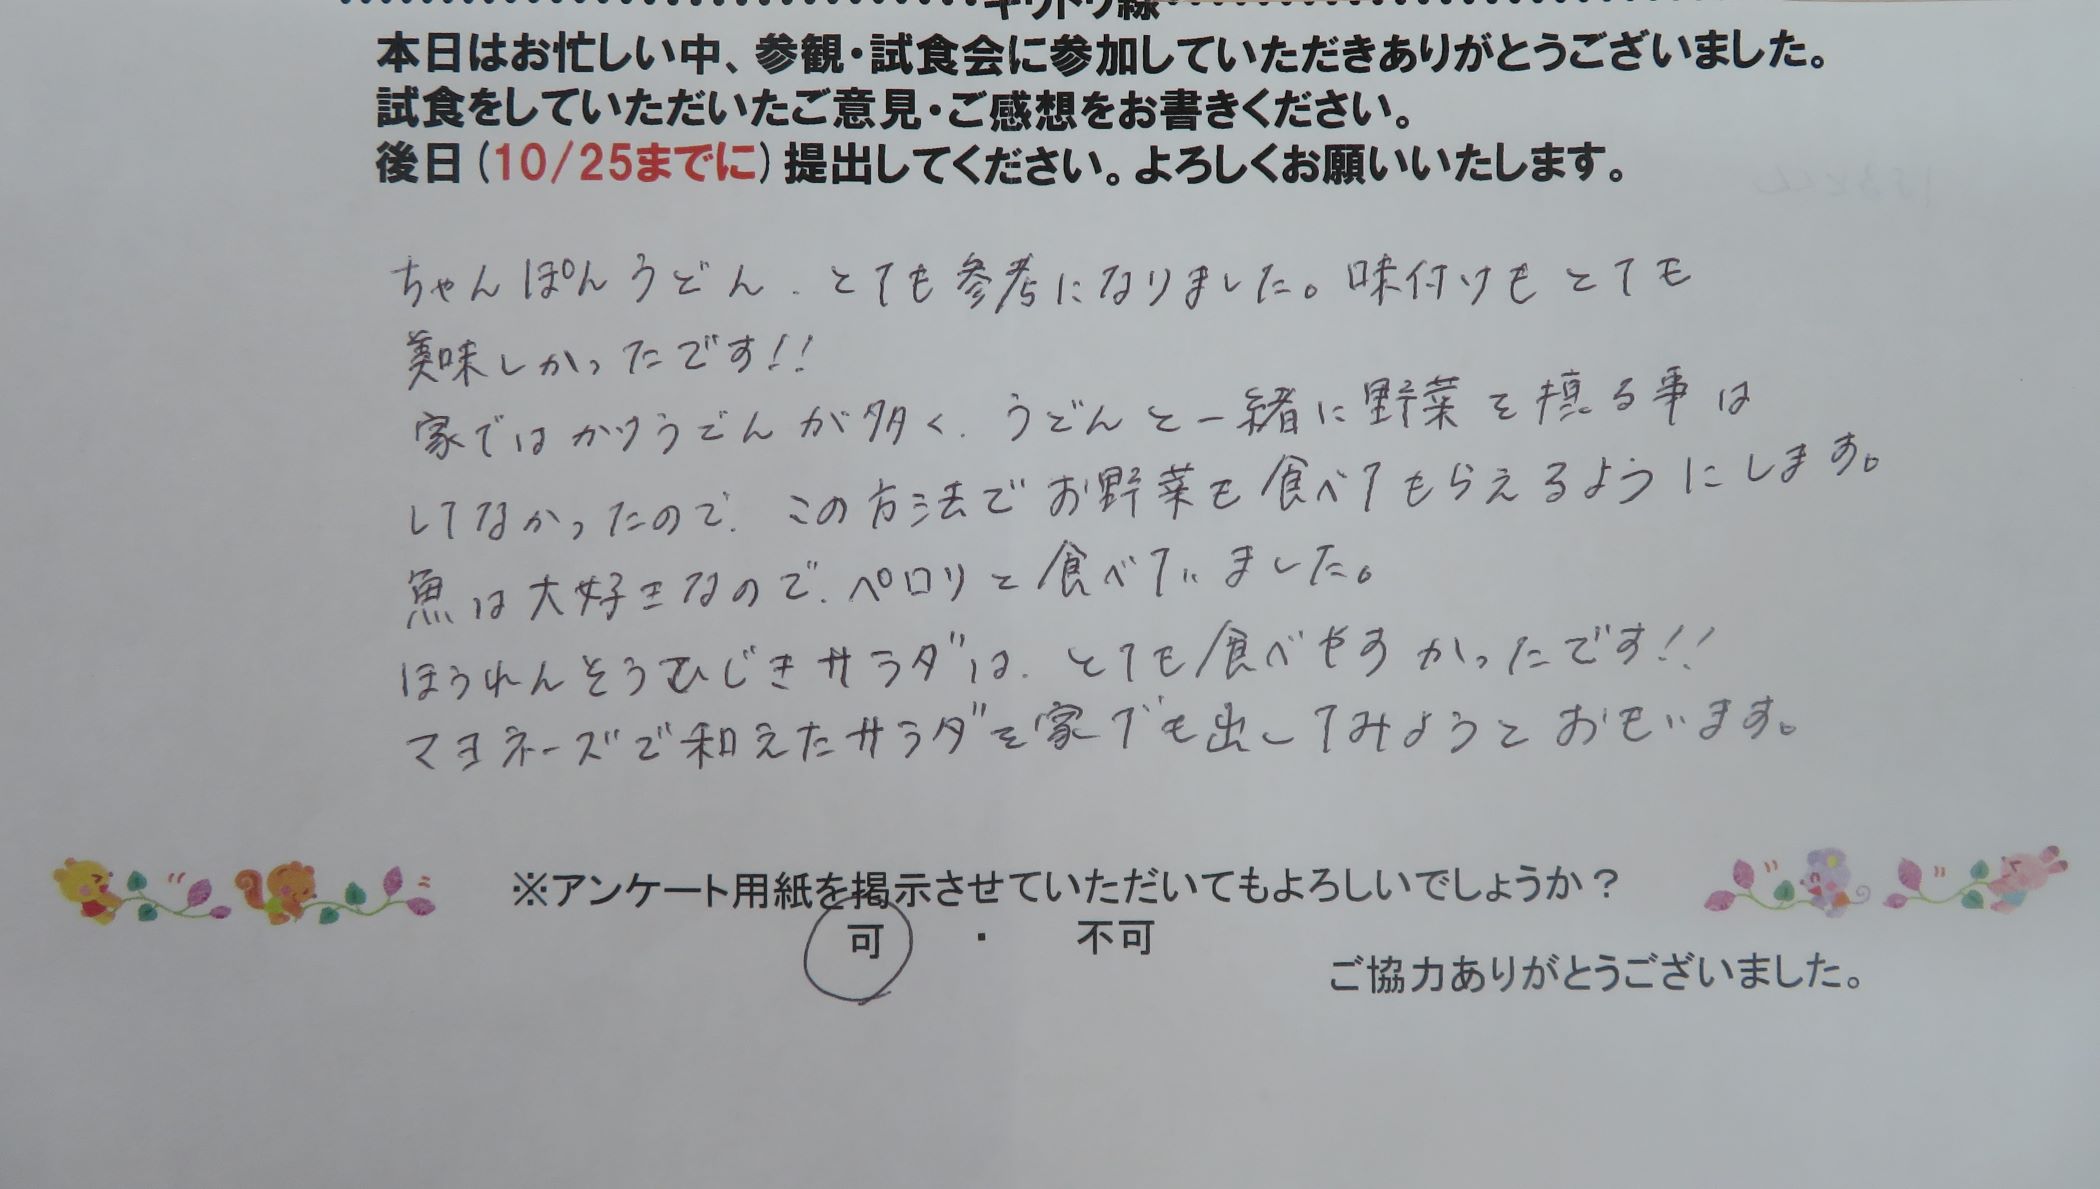 キリトリ線
本日はお忙しい中、参観・試食会に参加していただきありがとうございました。
試食をしていただいたご意見・ご感想をお書きください。
後日(10/25までに)提出してください。よろしくお願いいたします。
ちゃんぽんうどん、とても参考になりました。味付けもとても
美味しかったです!!
家ではかけうどんが多く、うどんと一緒に野菜を摂る事は
してなかったので、この方法でお野菜も食べてもらえるようにします。
魚は大好きなので、ペロリと食べていました。
ほうれんそうひじきサラダは、とても食べやすかったです!!
マヨネーズで和えたサラダを家でも出してみようとおもいます。
※アンケート用紙を掲示させていただいてもよろしいでしょうか?
可 ・ 不可
ご協力ありがとうございました。